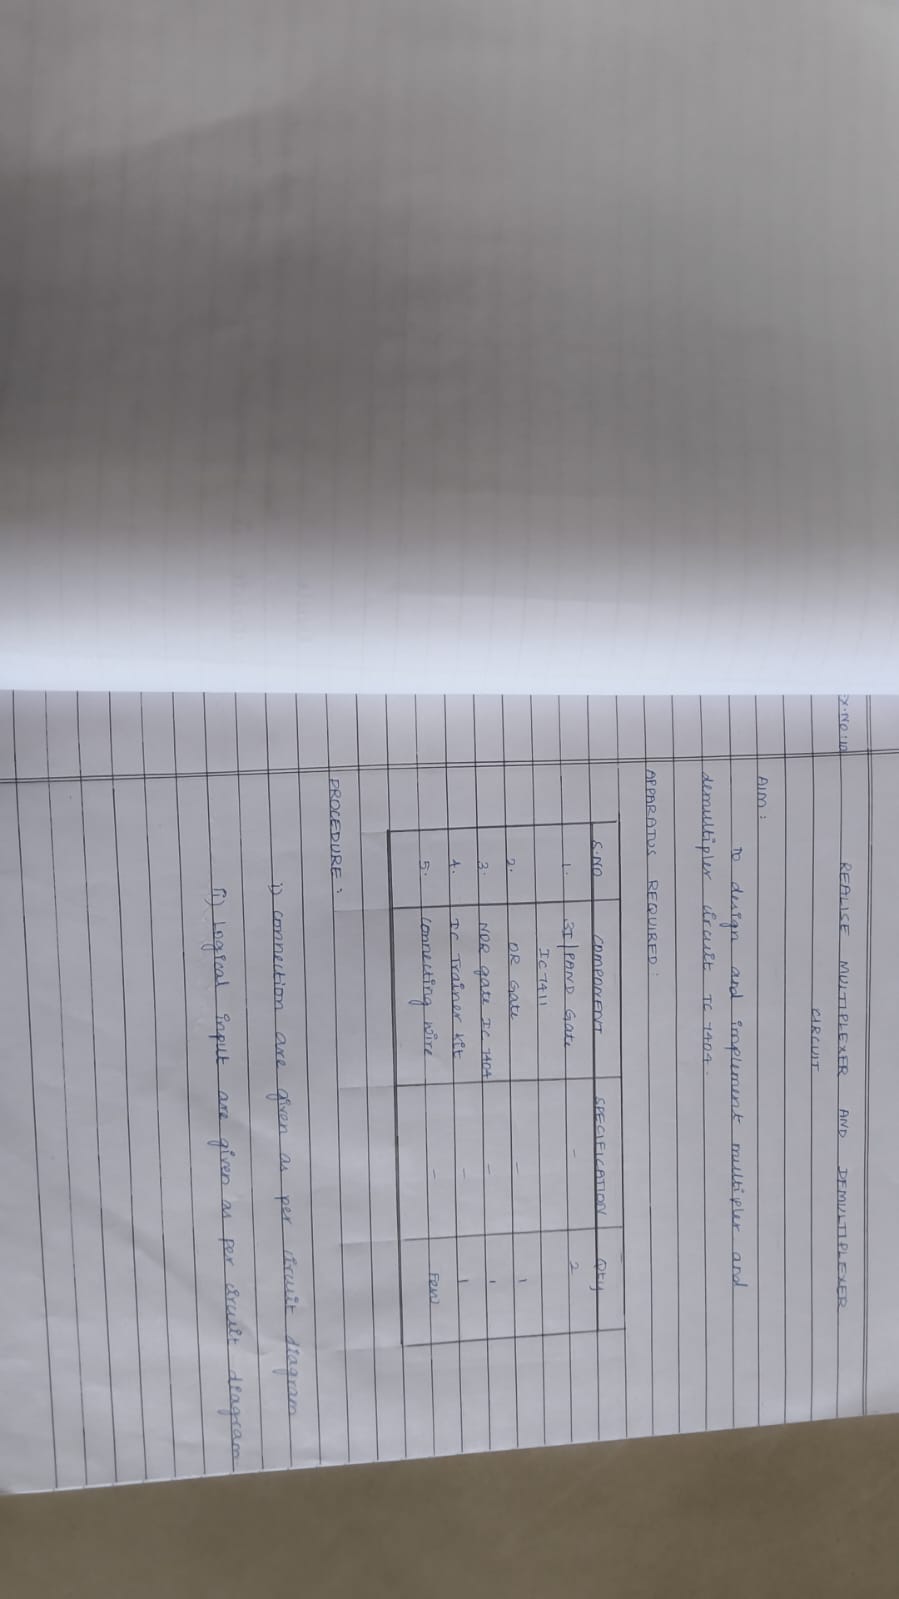 EX.NO:10
REALISE MULTIPLEXER AND DEMULTIPLEXER
CIRCUIT
AIM:
To design and implement multipler and
demultipler circuit IC 7404.
APPARATUS REQUIRED:
S.NO COMPONENT SPECIFICATION Qty
1. 3I/PAND Gate - 2
IC7411
2. OR Gate - 1
3. NOR gate IC 7404 - 1
4. IC Trainer kit - 1
5. Connecting wire - Few
PROCEDURE:
i) connection are given as per circuit diagram
ii) Logical input are given as per circuit diagram